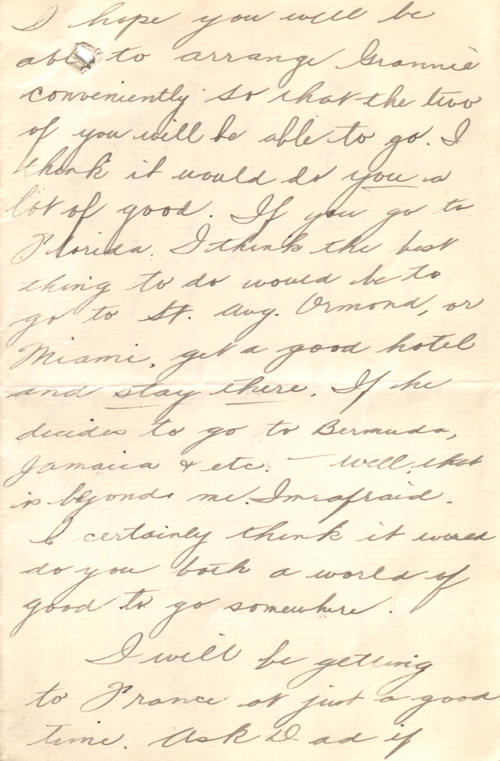 I hope you will be
able to arrange Grannie
conveniently so that the two
of you will be able to go. I
think it would do you a
lot of good. If you go to
Florida, I think the best
thing to do would be to
go to St. Aug. Ormond, or
Miami, get a good hotel
and stay there. If he
decides to go to Bermuda,
Jamaica & etc. — well, that
is beyond me I'm afraid.
I certainly think it would
do you both a world of
good to go somewhere.
I will be getting
to France at just a good
time. Ask Dad if